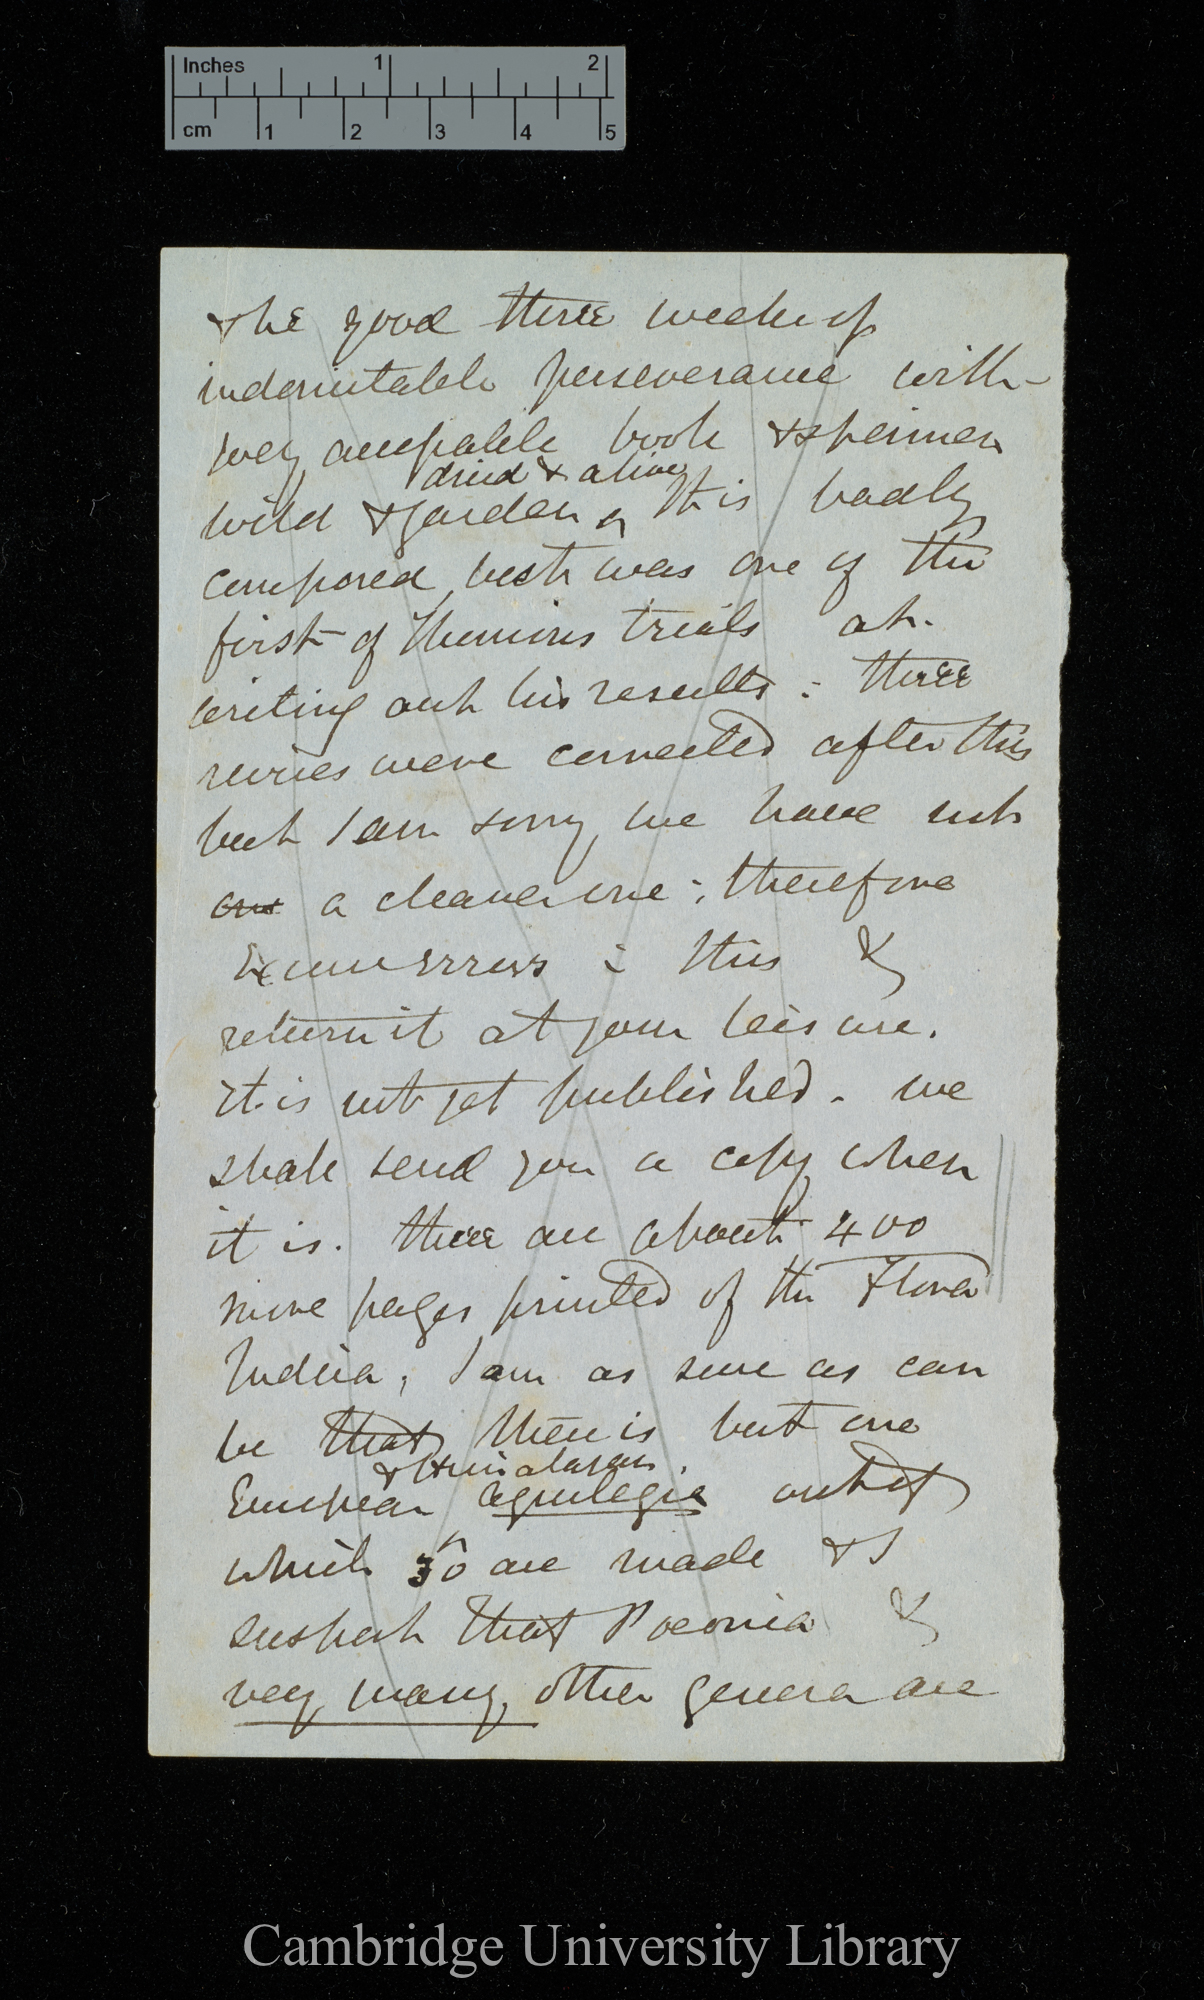 Inches 1 2
cm 1 2 3 4 5
& he good three weeks of
indomitable perseverance with
every accessible book & specimen
dried & alive
wild & garden ^ It is badly
composed but was one of the
first of Thomsons trials at
writing out his results: three
revises were corrected after this
but I am sorry we have not
one a cleaner one: therefore
Excuse errors in this &
return it at your leisure.
it is not yet published. we
shall send you a copy when
it is. there are about 400
more pages printed of the Flora
Indica, I am as sure as can
be that there is but one
& Himalayan
European Aquilegia out of
which 30 are made & I
suspect that Poeonia &
very many other genera are
Cambridge University Library